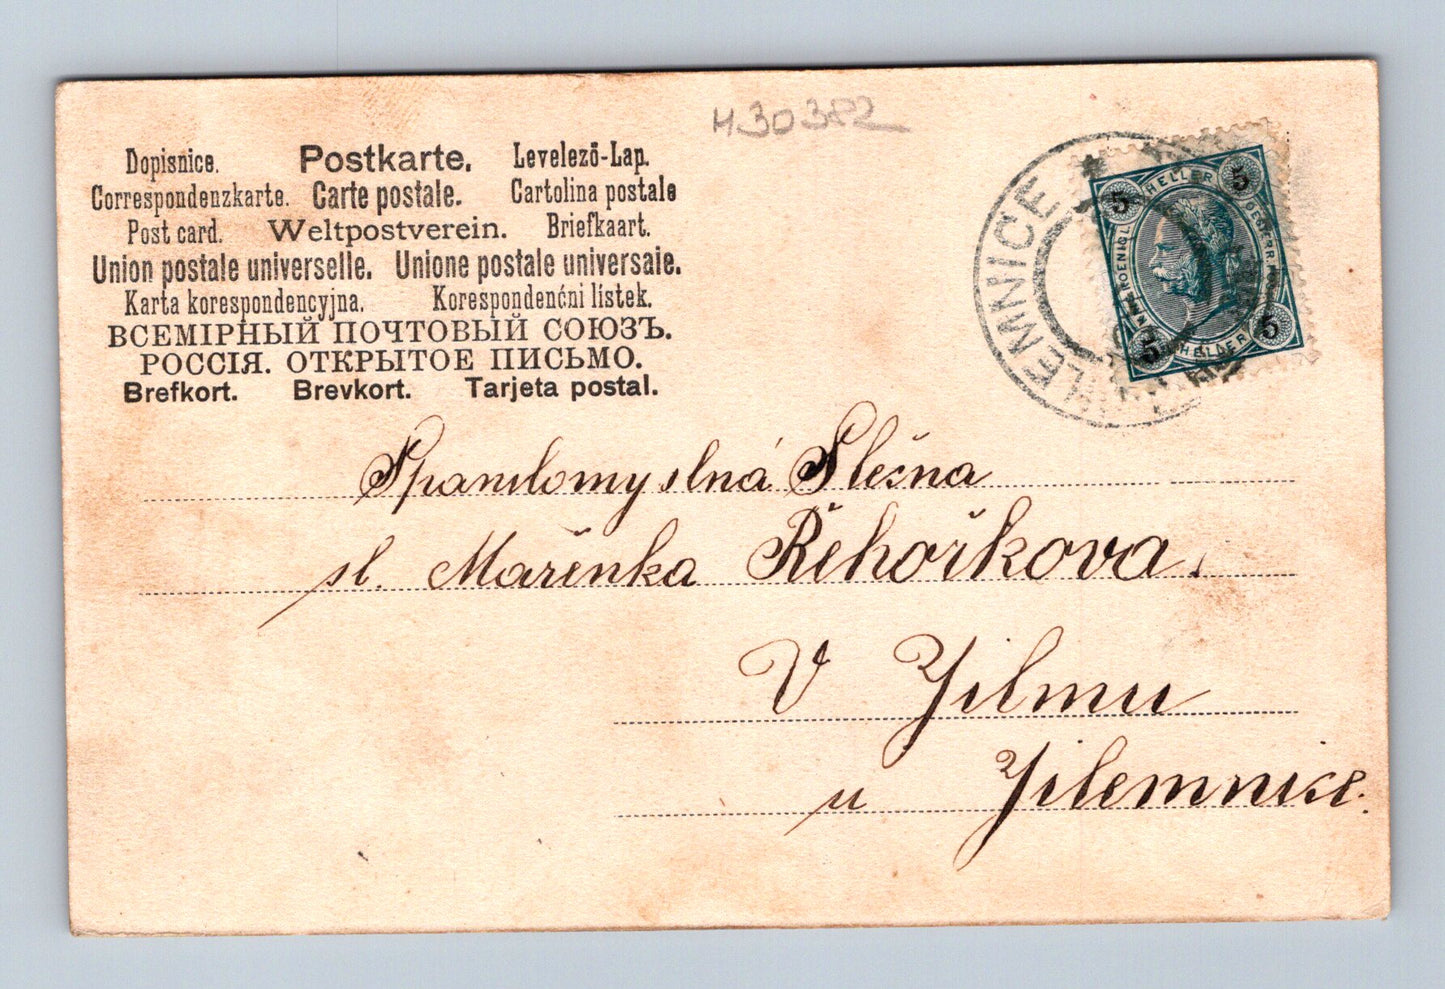 H30382
Dopisnice. Postkarte. Levelező-Lap.
Correspondenzkarte. Carte postale. Cartolina postale
Post card. Weltpostverein. Briefkaart.
Union postale universelle. Unione postale universale.
Karta korespondencyjna. Korespondenčni listek.
ВСЕМІРНЫЙ ПОЧТОВЫЙ СОЮЗЪ.
РОССІЯ. ОТКРЫТОЕ ПИСЬМО.
Brefkort. Brevkort. Tarjeta postal.
JILEMNICE
5 HELLER 5
5 HELLER 5
Spanilomyslná Slečna
sl. Mařenka Řehořkova.
V Jilmu
u Jilemnice.